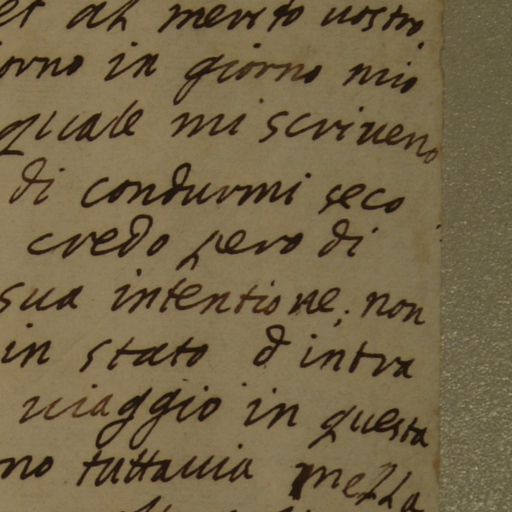 et al merito uostro
orno in giorno mio
quale mi scriueno
di condurmi seco
credo pero di
sua intentione; non
in stato d intra
uiaggio in questa
no tuttauia